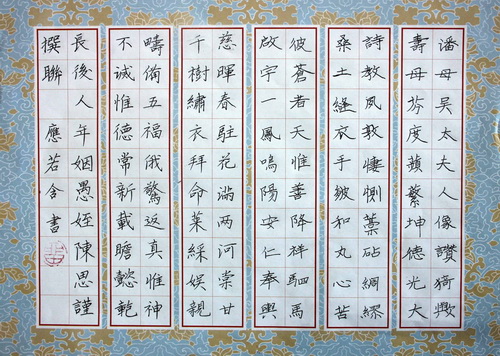 潘母吳太夫人像讚猗歟
壽母芬度蘋蘩坤德光大
詩教夙敦悽惻藁砧綢繆
桑土縫衣手皴和丸心苦
彼蒼者天惟善降祥駟馬
啟宇一鳳鳴陽安仁奉輿
慈暉春駐花滿兩河棠甘
千樹繡衣拜命萊綵娛親
疇備五福俄驚返真惟神
不誠惟德常新載瞻懿範
長後人年姻愚姪陳思謹
撰聯 應若含書